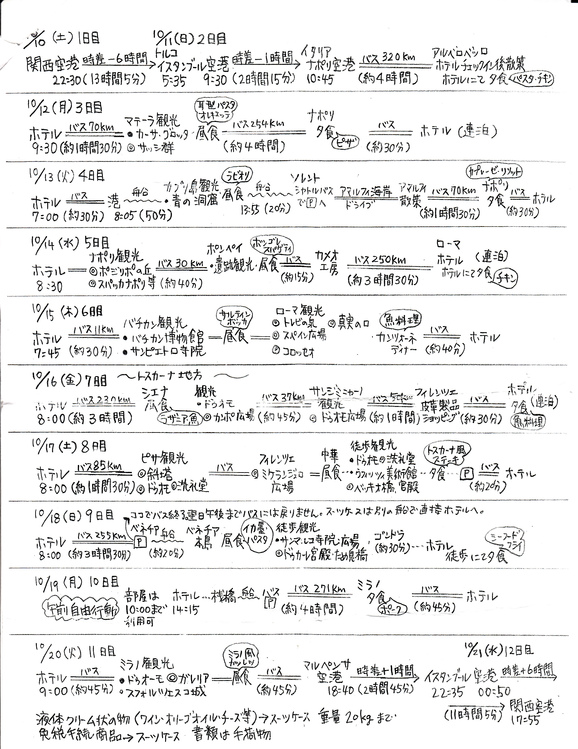 10/10 (土) 1日目 10/11(日) 2日目
トルコ イタリア アルベロベッロ
関西空港 時差-6時間 イスタンブール空港 時差-1時間 ナポリ空港 バス 320km ホテルチェックイン後散策
22:30 (13時間5分) 5:35 9:30 (2時間15分) 10:45 (約4時間) ホテルにて夕食 パスタ・チキン
10/12 (月) 3日目
耳型パスタ オレキエッテ
バス70km マテーラ観光 バス 254km ナポリ バス
ホテル ・カーサ・グロッタ・昼食 夕食 ホテル (連泊)
9:30 (約1時間30分) ◎サッシ群 (約4時間) ピザ (約30分)
10/13 (火) 4日目
ラビオリ
バス 船 カプリ島観光 昼食 船 ソレント アマルフィ海岸 アマルフィ バス70km ナポリ バス
ホテル 港 ・青の洞窟 シャトルバスでPへ ドライブ 散策 夕食 ホテル
7:00 (約30分) 8:05 (50分) 13:55 (20分) (約1時間30分) (約30分)
10/14 (水) 5日目
ナポリ観光 ボンゴレスパゲティ ローマ
ホテル ◎ポジリポの丘 バス 30km ポンペイ ・遺跡観光・昼食 バス カメオ工房 バス 250km ホテル (連泊)
8:30 ◎スパッカナポリ等 (約40分) (約15分) (約3時間30分) ホテルにて夕食 チキン
10/15 (木) 6日目
バス 11km バチカン観光 ローマ観光 魚料理
ホテル ・バチカン博物館 昼食 ◎トレビの泉 ◎真実の口 カンツォーネディナー バス ホテル
7:45 (約30分) ・サンピエトロ寺院 ◎スペイン広場 (約40分)
◎コロッセオ
10/16 (金) 7日目 〜トスカーナ地方〜
バス 230km シエナ 観光 バス 37km サンジミニャーノ バス フィレンツェ バス ホテル
ホテル 昼食 ・ドゥオモ 観光 皮革製品 夕食 (連泊)
8:00 (約3時間) ラザニア 魚 ◎カンポ広場 (約45分) ◎ドゥオモ広場 (約1時間) ショッピング (約30分) 魚料理
10/17 (土) 8日目
バス85km ピサ観光 バス フィレンツェ 中華 徒歩観光 トスカーナ風ステーキ バス
ホテル ◎斜塔 ◎ミケランジェロ広場 昼食 ・ドゥオモ◎洗礼堂 夕食 P ホテル
8:00 (約1時間30分) ◎ドゥオモ◎洗礼堂 ・ウフィッツィ美術館 (約20分)
◎ベッキオ橋、宮殿
10/18 (日) 9日目 ココでバス終了、翌日午後までバスには戻りません。スーツケースは別の船で直接ホテルへ。
バス 255km ベネチア 船 ベネチア イカ墨パスタ 徒歩観光 ゴンドラ シーフードフライ
ホテル P 本島 昼食 ・サンマルコ寺院・広場 (約30分) ホテル
8:00 (約3時間30分) (約20分) ・ドゥカーレ宮殿・ため息橋 徒歩にて夕食
10/19 (月) 10日目
午前自由行動 部屋は ホテル…桟橋 船 バス P バス 271km ミラノ バス ホテル
10:00まで 14:15 (約4時間) 夕食 ポーク (約45分)
利用可
10/20 (火) 11日目 10/21 (水) 12日目
バス ミラノ観光 ミラノ風カツレツ バス マルペンサ空港 時差+1時間 イスタンブール空港 時差+6時間
ホテル ・ドゥオーモ ◎ガレリア 昼食 22:35 00:50
9:00 (約45分) ・スフォルツェスコ城 (約45分) 18:40 (2時間45分) 関西空港
(11時間5分) 17:55
液体・クリーム状の物 (ワイン・オリーブオイル・チーズ等)→スーツケース 重量 20kgまで
免税手続し商品→スーツケース 書類は手荷物